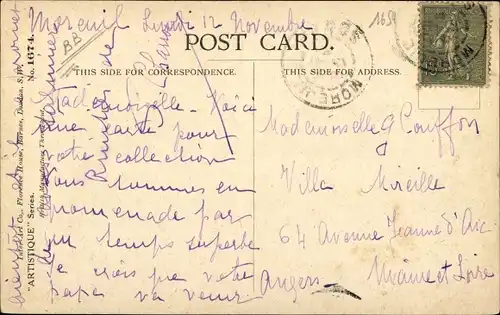 Moreuil Lundi 12 Novembre
1654
BB
POST CARD.
THIS SIDE FOR CORRESPONDENCE.
THIS SIDE FOR ADDRESS.
No. 1674.
Inter-Art Co., Florence House, Barnes, London, S.W.
"ARTISTIQUE" Series.
Mademoiselle. Voici
une carte pour
votre collection
Nous sommes en
promenade par
un temps superbe
Je crois que votre
papa va venir
bientôt
Mademoiselle G Pouffon
Villa Mireille
64 Avenue Jeanne d'Arc
Angers Maine et Loire
MOREUIL